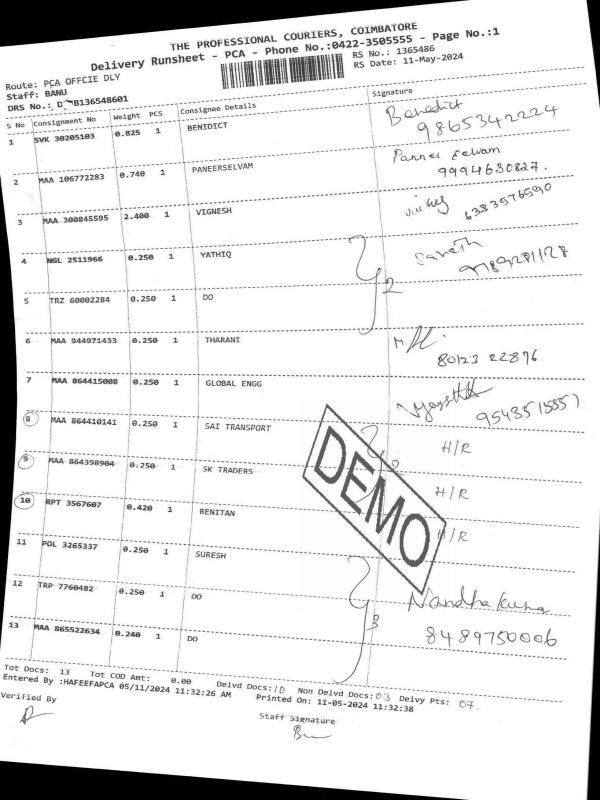 THE PROFESSIONAL COURIERS, COIMBATORE
Delivery Runsheet - PCA - Phone No.:0422-3505555 - Page No.:1
Route: PCA OFFCIE DLY
RS No.: 1365486
Staff: BANU
RS Date: 11-May-2024
DRS No.: B136548601
S No Consignment No Weight PCS Consignee Details Signature
1 SVK 30205103 0.825 1 BENIDICT Benedict
9865342224
2 MAA 106772283 0.740 1 PANEERSELVAM Pannei selvam
9994630827.
3 MAA 300845595 2.400 1 VIGNESH
6383576590
4 NGL 2511966 0.250 1 YATHIQ
2
5 TRZ 60002284 0.250 1 DO
6 MAA 944971433 0.250 1 THARANI
80123 22896
7 MAA 864415008 0.250 1 GLOBAL ENGG
8 MAA 864410141 0.250 1 SAI TRANSPORT H/R
9 MAA 864398904 0.250 1 SK TRADERS H/R
10 RPT 3567607 0.420 1 RENITAN H/R
DEMO
11 POL 3265337 0.250 1 SURESH
12 TRP 7760482 0.250 1 DO Nandha Kumar
3
13 MAA 865522634 0.240 1 DO 8489750006
Tot Docs: 13 Tot COD Amt: 0.00 Delvd Docs:10 Non Delvd Docs:03 Delvy Pts: 07.
Entered By :HAFEEFAPCA 05/11/2024 11:32:26 AM Printed On: 11-05-2024 11:32:38
Verified By
Staff Signature